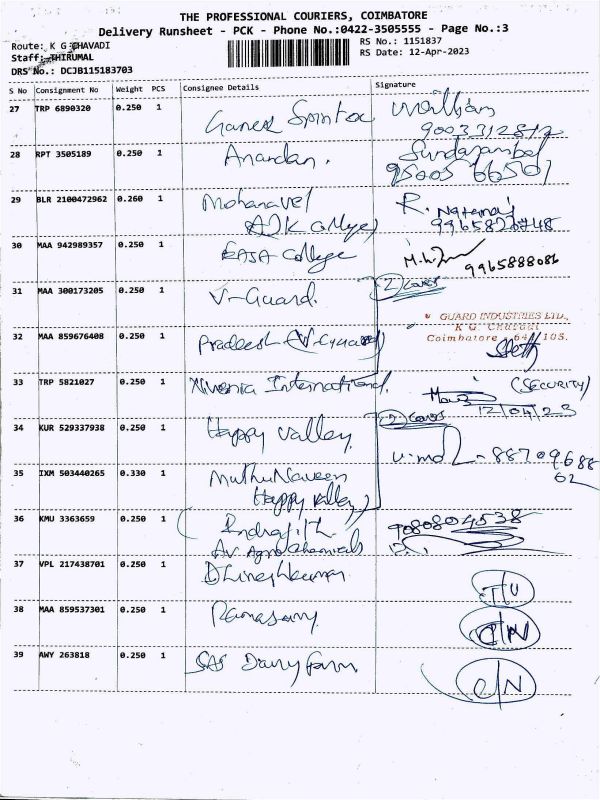 THE PROFESSIONAL COURIERS, COIMBATORE
Delivery Runsheet - PCK - Phone No.:0422-3505555 - Page No.:3
Route: K G CHAVADI
RS No.: 1151837
Staff: THIRUMAL
RS Date: 12-Apr-2023
DRS No.: DCJB115183703
S No Consignment No Weight PCS Consignee Details Signature
27 TRP 6890320 0.250 1 Ganesh
28 RPT 3505189 0.250 1 Anandan.
29 BLR 2100472962 0.260 1 Mohanavel R.
AJK College)
30 MAA 942989357 0.250 1 EASA College
9965888086
31 MAA 300173205 0.250 1 V-Guard. 2 Covers
GUARD INDUSTRIES LTD.,
K G Chavadi
Coimbatore 641 105.
32 MAA 859676408 0.250 1 Pradeesh (V-Guard)
33 TRP 5821027 0.250 1 International. (SECURITY)
12/04/23
34 KUR 529337938 0.250 1 Happy valley 2 Covers
35 IXM 503440265 0.330 1 Muthu Naveen
Happy valley)
36 KMU 3363659 0.250 1 Indrajith 9080804538
AV. Agro Chemicals
37 VPL 217438701 0.250 1 Dhineshkumar
38 MAA 859537301 0.250 1 Ramasamy
39 AWY 263818 0.250 1 SAS Dairy Farm C/N